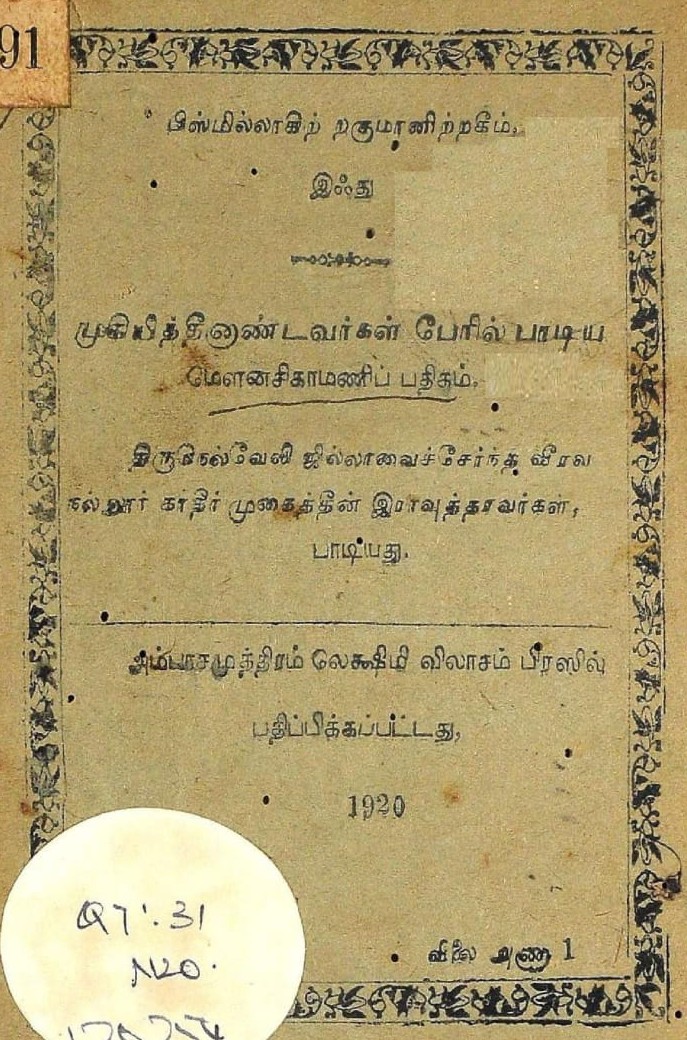 91
பிஸ்மில்லாகிற் றகுமானிற்றகீம்,
இஃது
முகியித்தீனாண்டவர்கள் பேரில் பாடிய
மௌனசிகாமணிப் பதிகம்.
திருநெல்வேலி ஜில்லாவைச்சேர்ந்த வீரவ
நல்லூர் காதிர் முகைத்தீன் இராவுத்தரவர்கள்,
பாடியது.
அம்பாசமுத்திரம் லெக்ஷிமி விலாசம் பிரஸில்
பதிப்பிக்கப்பட்டது,
1920
விலை அணா 1
Q7:31
N20.